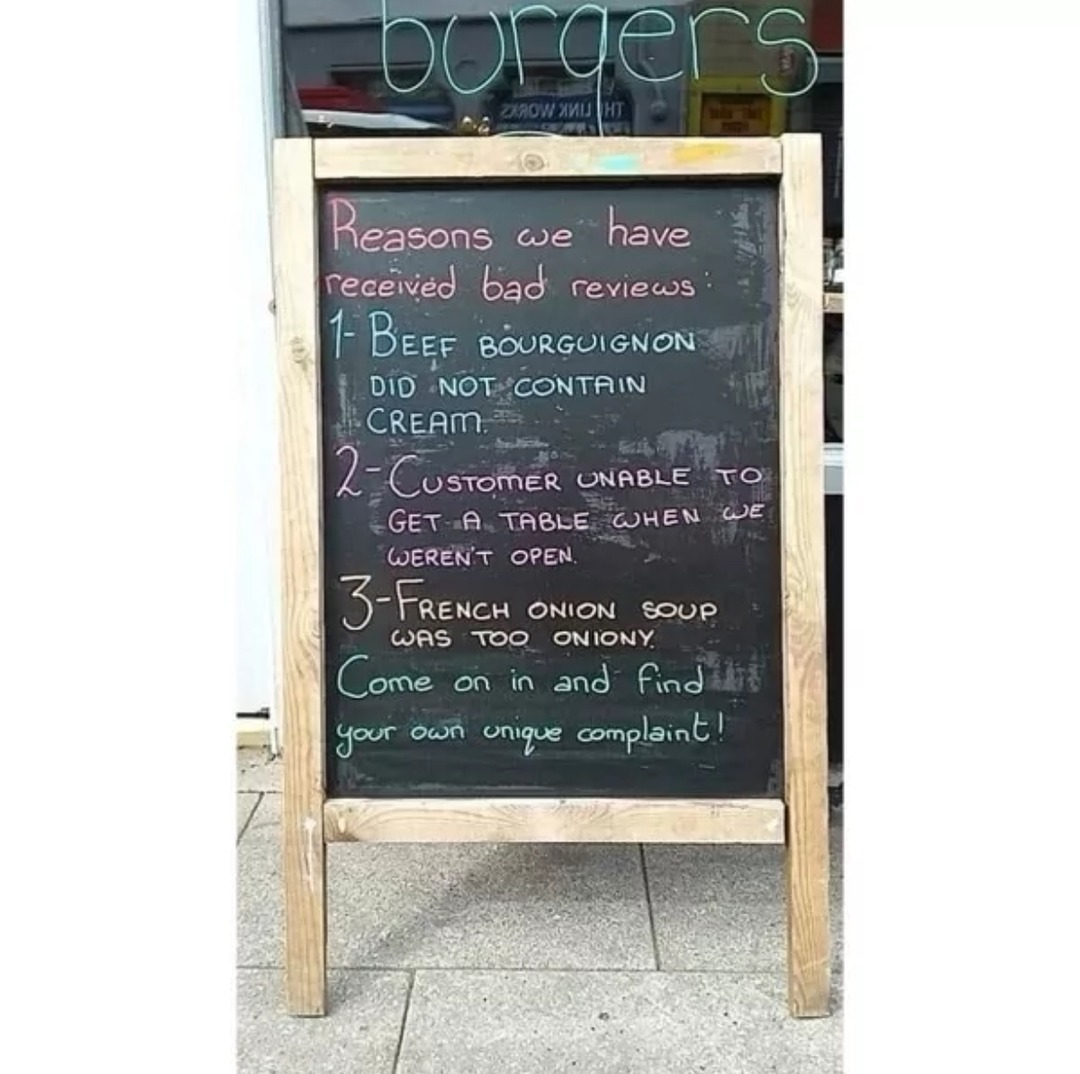 burgers
THE LINK WORKS
Reasons we have
received bad reviews:
1- BEEF BOURGUIGNON
DID NOT CONTAIN
CREAM.
2- CUSTOMER UNABLE TO
GET A TABLE WHEN WE
WEREN'T OPEN.
3- FRENCH ONION SOUP
WAS TOO ONIONY.
Come on in and find
your own unique complaint!